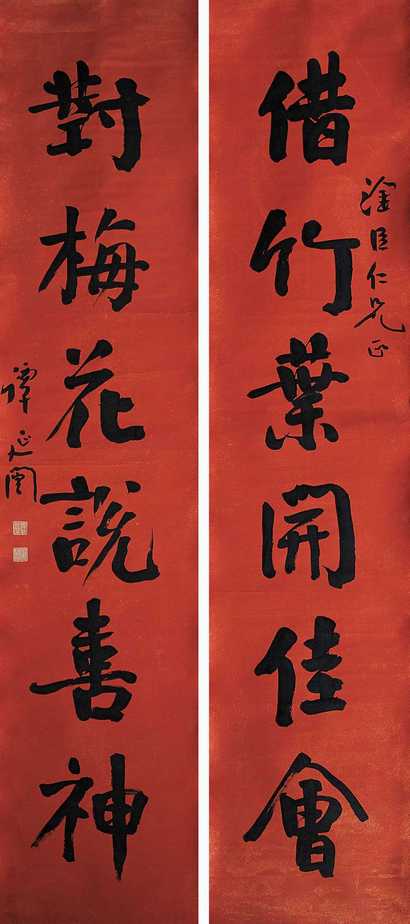 借竹葉開佳會
臣仁兄正
對梅花說喜神
譚延闓